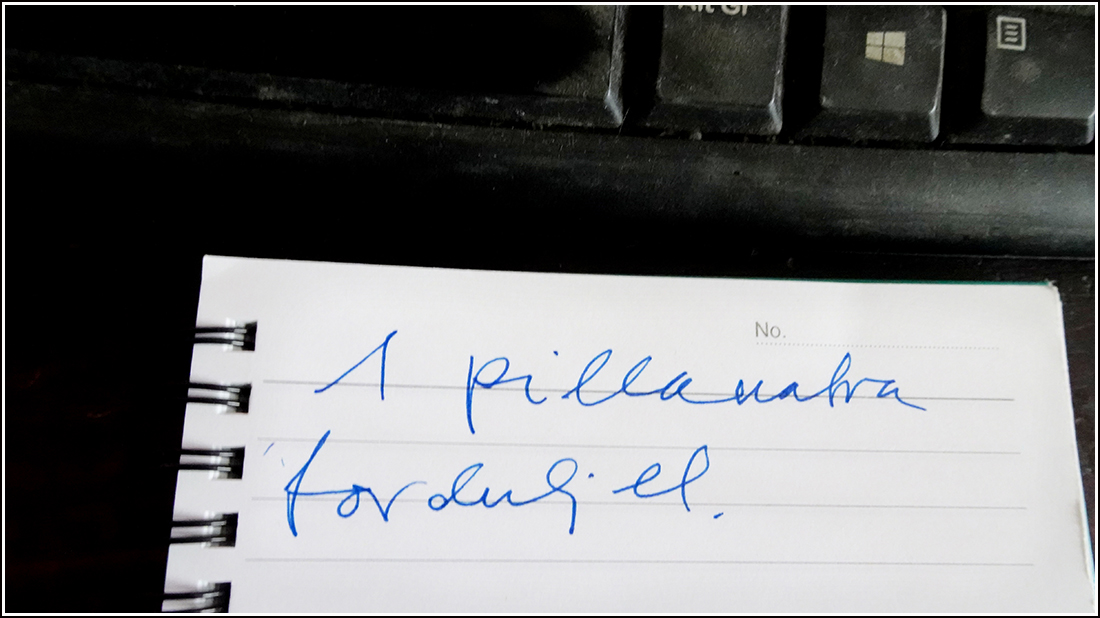 Alt Gr
No.
1 pillanatra
fordulj el.